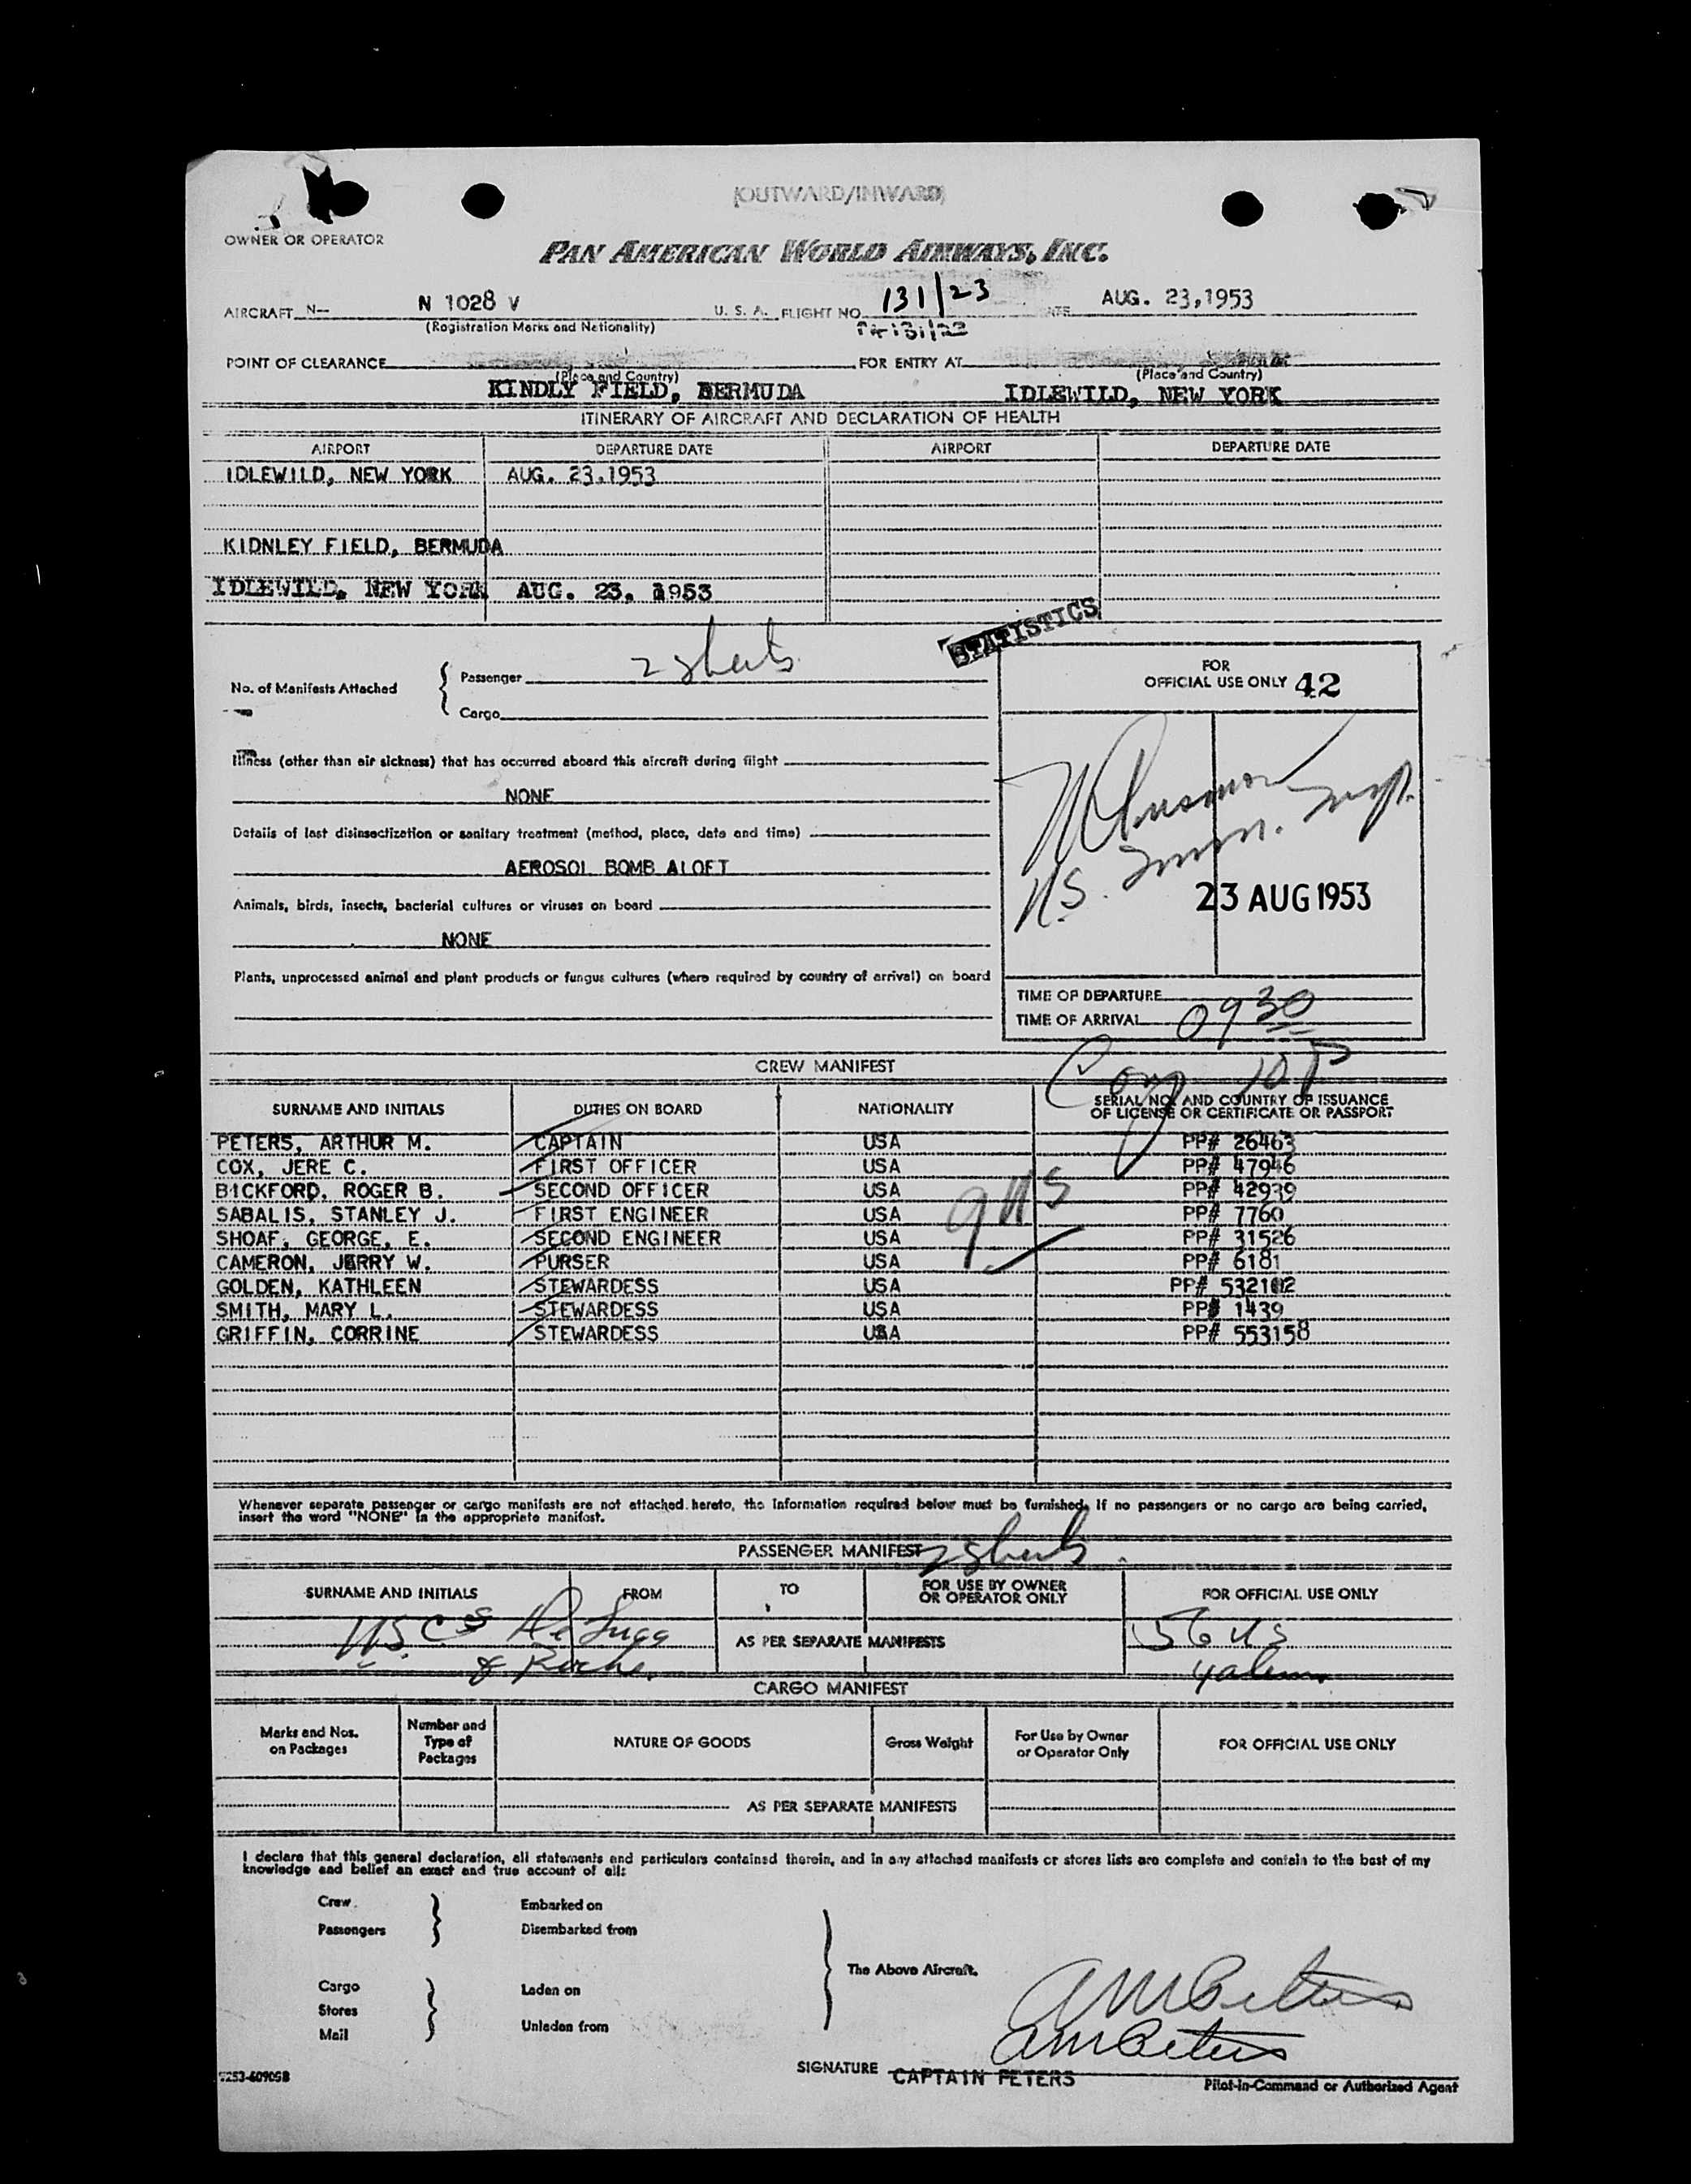 (OUTWARD/INWARD)
OWNER OR OPERATOR
PAN AMERICAN WORLD AIRWAYS, INC.
AIRCRAFT N-- N 1028 V U. S. A. FLIGHT NO. 131/23 DATE AUG. 23,1953
(Registration Marks and Nationality)
POINT OF CLEARANCE FOR ENTRY AT
(Place and Country) (Place and Country)
KINDLY FIELD, BERMUDA IDLEWILD, NEW YORK
ITINERARY OF AIRCRAFT AND DECLARATION OF HEALTH
AIRPORT DEPARTURE DATE AIRPORT DEPARTURE DATE
IDLEWILD, NEW YORK AUG. 23.1953
KIDNLEY FIELD, BERMUDA
IDLEWILD, NEW YORK AUG. 23, 1953
STATISTICS
No. of Manifests Attached
Passenger 2 sheets
Cargo
FOR
OFFICIAL USE ONLY 42
Illness (other than air sickness) that has occurred aboard this aircraft during flight
NONE
Details of last disinsectization or sanitary treatment (method, place, date and time)
AEROSOL BOMB ALOFT
Animals, birds, insects, bacterial cultures or viruses on board
NONE
Plants, unprocessed animal and plant products or fungus cultures (where required by country of arrival) on board
U.S. Imm. Insp.
23 AUG 1953
TIME OF DEPARTURE
TIME OF ARRIVAL 0930
CREW MANIFEST
SURNAME AND INITIALS DUTIES ON BOARD NATIONALITY SERIAL NO. AND COUNTRY OF ISSUANCE
OF LICENSE OR CERTIFICATE OR PASSPORT
PETERS, ARTHUR M. CAPTAIN USA PP# 26463
COX, JERE C. FIRST OFFICER USA PP# 47946
BICKFORD, ROGER B. SECOND OFFICER USA PP# 42939
SABALIS, STANLEY J. FIRST ENGINEER USA PP# 7760
SHOAF, GEORGE, E. SECOND ENGINEER USA PP# 31526
CAMERON, JERRY W. PURSER USA PP# 6181
GOLDEN, KATHLEEN STEWARDESS USA PP# 532102
SMITH, MARY L. STEWARDESS USA PP# 1439
GRIFFIN, CORRINE STEWARDESS USA PP# 553158
9 US
Whenever separate passenger or cargo manifests are not attached hereto, the information required below must be furnished. If no passengers or no cargo are being carried,
insert the word "NONE" in the appropriate manifest.
PASSENGER MANIFEST 2 sheets
SURNAME AND INITIALS FROM TO FOR USE BY OWNER
OR OPERATOR ONLY FOR OFFICIAL USE ONLY
AS PER SEPARATE MANIFESTS
56 US
4 alien
CARGO MANIFEST
Marks and Nos.
on Packages
Number and
Type of
Packages
NATURE OF GOODS
Gross Weight
For Use by Owner
or Operator Only
FOR OFFICIAL USE ONLY
AS PER SEPARATE MANIFESTS
I declare that this general declaration, all statements and particulars contained therein, and in any attached manifests or stores lists are complete and contain to the best of my
knowledge and belief an exact and true account of all:
Crew
Passengers
Embarked on
Disembarked from
Cargo
Stores
Mail
Laden on
Unladen from
The Above Aircraft.
AM Peters
AM Peters
SIGNATURE CAPTAIN PETERS
Pilot-in-Command or Authorized Agent